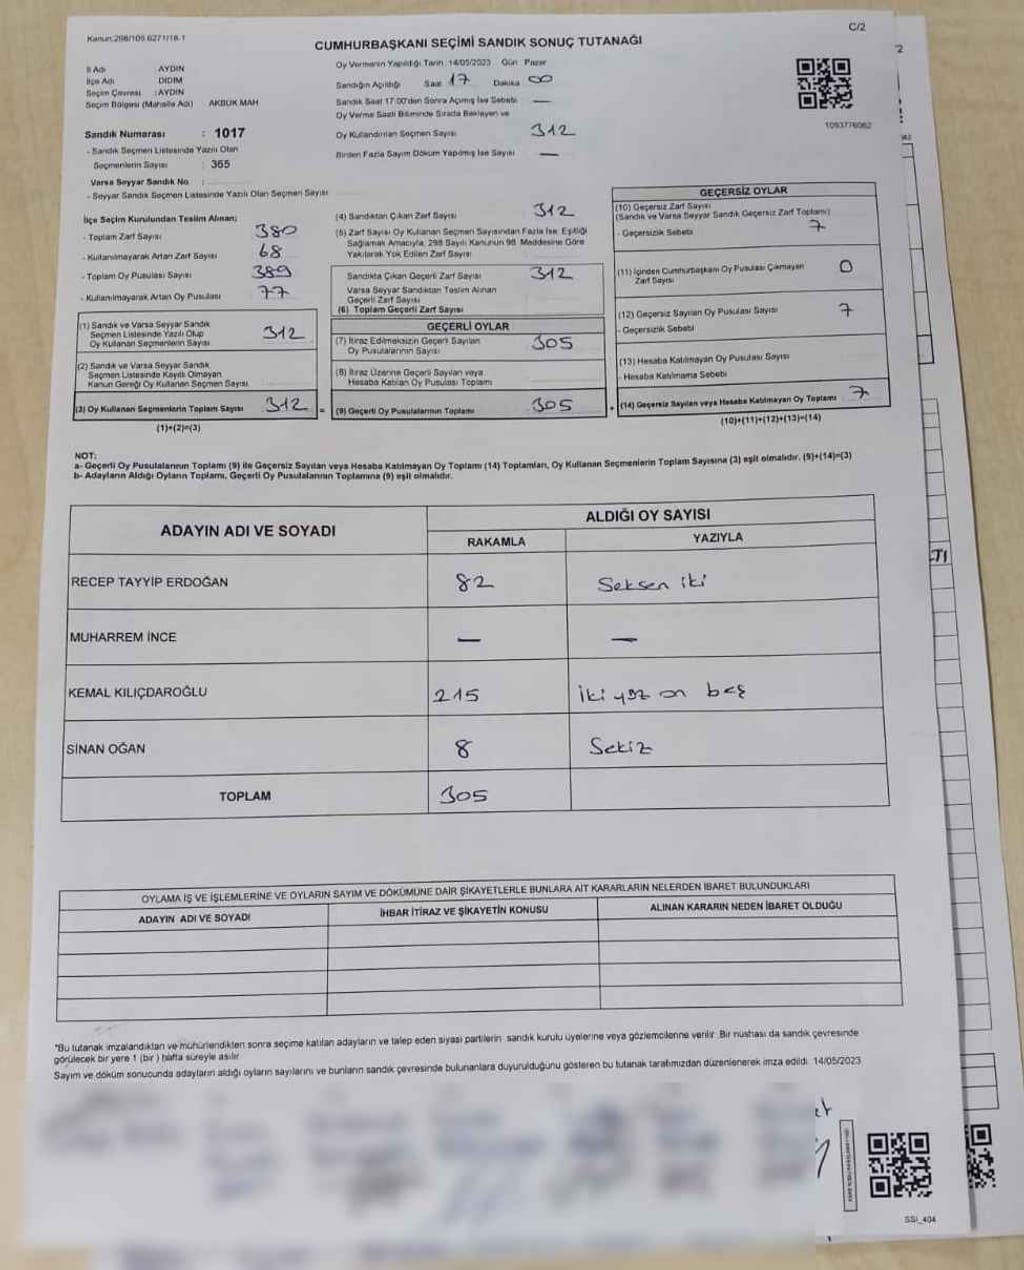 Kanun:298/105.6271/18-1
C/2
CUMHURBAŞKANI SEÇİMİ SANDIK SONUÇ TUTANAĞI
İl Adı AYDIN
İlçe Adı DİDİM
Seçim Çevresi : AYDIN
Seçim Bölgesi (Mahalle Adı) AKBÜK MAH
Sandık Numarası : 1017
- Sandık Seçmen Listesinde Yazılı Olan
Seçmenlerin Sayısı : 365
Varsa Seyyar Sandık No :
- Seyyar Sandık Seçmen Listesinde Yazılı Olan Seçmen Sayısı
Oy Vermenin Yapıldığı Tarih :14/05/2023 Gün : Pazar
Sandığın Açıldığı Saat 17 Dakika 00
Sandık Saat 17.00'den Sonra Açılmış İse Sebebi —
Oy Verme Saati Bitiminde Sırada Bekleyen ve
Oy Kullandırılan Seçmen Sayısı 312
Birden Fazla Sayım Döküm Yapılmış İse Sayısı —
1093776062
İlçe Seçim Kurulundan Teslim Alınan;
- Toplam Zarf Sayısı 380
- Kullanılmayarak Artan Zarf Sayısı 68
- Toplam Oy Pusulası Sayısı 389
- Kullanılmayarak Artan Oy Pusulası 77
(1) Sandık ve Varsa Seyyar Sandık
Seçmen Listesinde Yazılı Olup
Oy Kullanan Seçmenlerin Sayısı 312
(2) Sandık ve Varsa Seyyar Sandık
Seçmen Listesinde Kayıtlı Olmayan
Kanun Gereği Oy Kullanan Seçmen Sayısı
(3) Oy Kullanan Seçmenlerin Toplam Sayısı 312 =
(1)+(2)=(3)
(4) Sandıktan Çıkan Zarf Sayısı 312
(5) Zarf Sayısı Oy Kullanan Seçmen Sayısından Fazla İse, Eşitliği
Sağlamak Amacıyla, 298 Sayılı Kanunun 98. Maddesine Göre
Yakılarak Yok Edilen Zarf Sayısı
Sandıkta Çıkan Geçerli Zarf Sayısı 312
Varsa Seyyar Sandıktan Teslim Alınan
Geçerli Zarf Sayısı
(6) Toplam Geçerli Zarf Sayısı
GEÇERLİ OYLAR
(7) İtiraz Edilmeksizin Geçerli Sayılan
Oy Pusulalarının Sayısı 305
(8) İtiraz Üzerine Geçerli Sayılan veya
Hesaba Katılan Oy Pusulası Toplamı
(9) Geçerli Oy Pusulalarının Toplamı 305 +
GEÇERSİZ OYLAR
(10) Geçersiz Zarf Sayısı
(Sandık ve Varsa Seyyar Sandık Geçersiz Zarf Toplamı) 7
- Geçersizlik Sebebi
(11) İçinden Cumhurbaşkanı Oy Pusulası Çıkmayan
Zarf Sayısı 0
(12) Geçersiz Sayılan Oy Pusulası Sayısı 7
- Geçersizlik Sebebi
(13) Hesaba Katılmayan Oy Pusulası Sayısı
- Hesaba Katılmama Sebebi
(14) Geçersiz Sayılan veya Hesaba Katılmayan Oy Toplamı 7
(10)+(11)+(12)+(13)=(14)
NOT:
a- Geçerli Oy Pusulalarının Toplamı (9) ile Geçersiz Sayılan veya Hesaba Katılmayan Oy Toplamı (14) Toplamları, Oy Kullanan Seçmenlerin Toplam Sayısına (3) eşit olmalıdır. (9)+(14)=(3)
b- Adayların Aldığı Oyların Toplamı, Geçerli Oy Pusulalarının Toplamına (9) eşit olmalıdır.
ADAYIN ADI VE SOYADI
ALDIĞI OY SAYISI
RAKAMLA YAZIYLA
RECEP TAYYİP ERDOĞAN 82 Seksen iki
MUHARREM İNCE — —
KEMAL KILIÇDAROĞLU 215 iki yüz on beş
SİNAN OĞAN 8 Sekiz
TOPLAM 305
OYLAMA İŞ VE İŞLEMLERİNE VE OYLARIN SAYIM VE DÖKÜMÜNE DAİR ŞİKAYETLERLE BUNLARA AİT KARARLARIN NELERDEN İBARET BULUNDUKLARI
ADAYIN ADI VE SOYADI İHBAR İTİRAZ VE ŞİKAYETİN KONUSU ALINAN KARARIN NEDEN İBARET OLDUĞU
*Bu tutanak imzalandıktan ve mühürlendikten sonra seçime katılan adayların ve talep eden siyasi partilerin sandık kurulu üyelerine veya gözlemcilerine verilir. Bir nüshası da sandık çevresinde
görülecek bir yere 1 (bir ) hafta süreyle asılır
Sayım ve döküm sonucunda adayların aldığı oyların sayılarını ve bunların sandık çevresinde bulunanlara duyurulduğunu gösteren bu tutanak tarafımızdan düzenlenerek imza edildi. 14/05/2023
SSİ_404